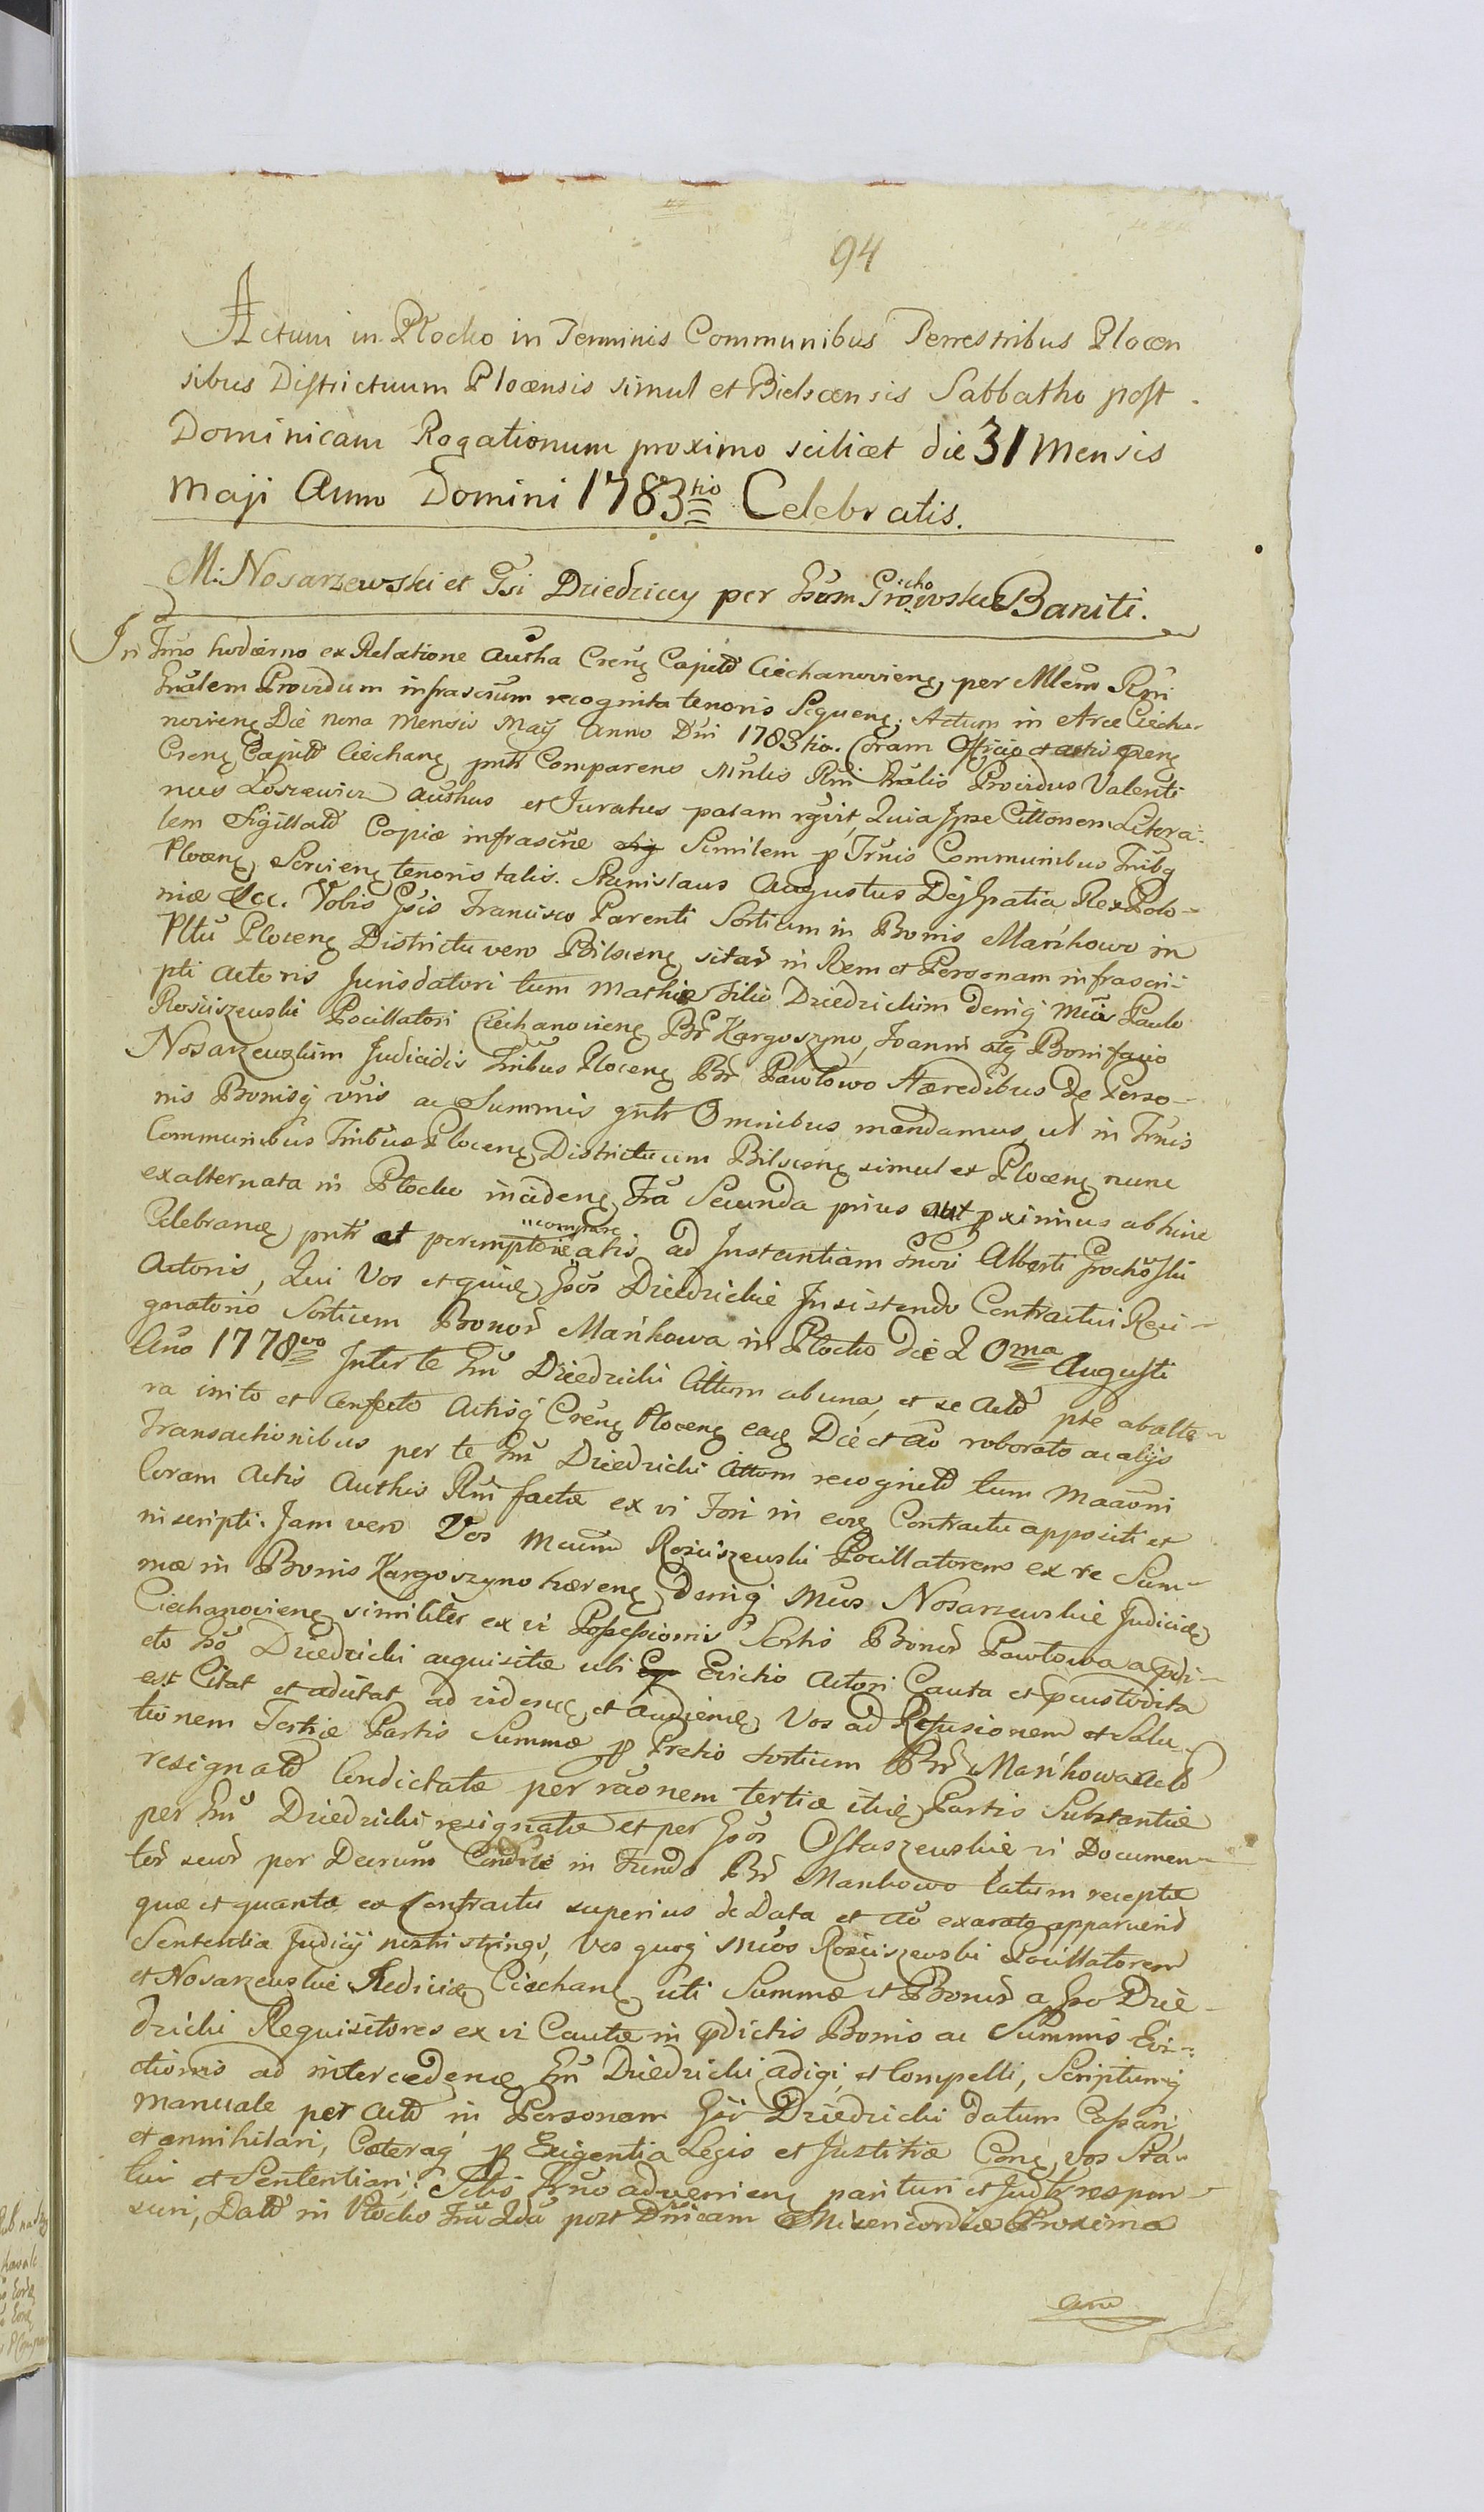 94
Actum in Plocko in Terminis Communibus Terrestribus Plocen
sibus Districtuum Plocensis simul et Bielscensis Sabbatho post
Dominicam Rogationum proximo scilicet die 31 Mensis
Maji Anno Domini 1783tio Celebratis.
M: Nosarzewski et Gsi Dziedziccy per Gsum Baniti.
In Trno hodierno ex Relatione Autha Creng Capitl Ciechanovieng, per Mlem Rni
Gnalem Providum infrascrum recognita tenoris Sequeng. Actum in Arce Ciecha-
novieng Die nona Mensis Maij Anno Dni 1783 tio. Coram Officio et actis preng
Creng Capitl Ciechang pntr Comparens Mnlis Rni Gnalis Providus Valenti
nus Loszewicz Authus et Juratus palam rgvit, Quia Ipse Cittonem Litera-
lem Sigillatd Copiæ infrascræ Similem p Trnis Communibus Tribq
Ploceng Servieng tenoris talis. Stanislaus Augustus Dei Gratia Rex Polo-
niæ &c. Vobis Gsis Francisco Parenti Sortium in Bonis Mańkowo in
Pltu Ploceng Districtu vero Bilsceng sitar in Rem et Personam infrascri-
pti Actoris Jurisdatori tum Mathiæ Filio Dziedzickim deniq Mcis Paulo
Rościszewski Pocillatori Ciechanovieng Br Kargoszyno, Joanni atq Bonifacio
Nosarzewskim Judicidis Tribus Ploceng Br Pawłowo Hæredibus De Perso-
nis Bonisq vris ac Summis gntr Omnibus mandamus, ut in Trnis
Communibus Tribus Ploceng Districtuum Bilsceng simul et Ploceng nunc
exalternata in Plocko incideng Fra Secunda prius aut pximius abhinc
Celebrang pntr et peremptorie comprare atis ad Instantiam Gnri Alberti Grochowski
Actoris, Qui Vos et quidg Gsos Dziedzickie Insistendo Contractui Resi-
gnatorio Sortium Bonor Mańkowa in Plocko die 20ma Augusti
Ano 1778vo Inter te Gsu Dziedzicki Cittum ab una, et se Actd pte abalte-
ra inito et confecto Actisq Creng Ploceng eadg Die et Ao roborato ac alijs
Transactionibus per te Gsu Dziedzicki Cittum recognitd tum
Coram Actis Authis Rni factæ ex vi Fori in eorg Contractu appositi et
inscripti. Jam vero Vos Mcum Rościszewski Pocillatorem ex re Sum-
mæ in Bonis Kargoszyno hæreng deniq Mcos Nosarzewskie Judicidg
Ciechanovieng similiter ex vi Possessionis Sortis Bonor Pawłowa a pdi-
cto Gso Dziedzicki acquisitæ ubi Evictio Actori Cauta et pcustodita
est Citat et aducitat ad videng et audieng Vos ad Refusionem et Solu-
tionem Tertiæ Partis Summæ p Pretio Sortium Br Mańkowa Actd
resignatd Condictatæ per raonem tertiæ Partis Substantiæ
per Gsu Dziedzicki resignatæ et per Gsos Ostaszewskie vi Documen-
tor seur per Decrum in Fundo Br Mankowo latum receptæ
quæ et quanta ex Contractu superius de Data et Ao exarato apparuerid
Sententia Judicij nostri stringi, Vos quoq Mcos Rościszewski Pocillatorem
et Nosarzewskie Judicidg Ciechang uti Summæ et Bonor a Gso Dzie-
dzicki Requisitores ex vi Cautæ in pdictis Bonis ac Summis Evi-
ctionis ad intercedeng Gsu Dziedzicki adigi et Compelli, Scriptumq
manuale per Actd in Personam Gsi Dziedzicki datum Cassari
et annihilari, Cæteraq p Exigentia Legis et Justitiæ Cong, vos Sta-
tui et Sententiari; Sitis Trno advenieng parituri et Judtr respon-
suri, Datd in Plocko Fra 2da post Dnicam Misericordiæ Proxima